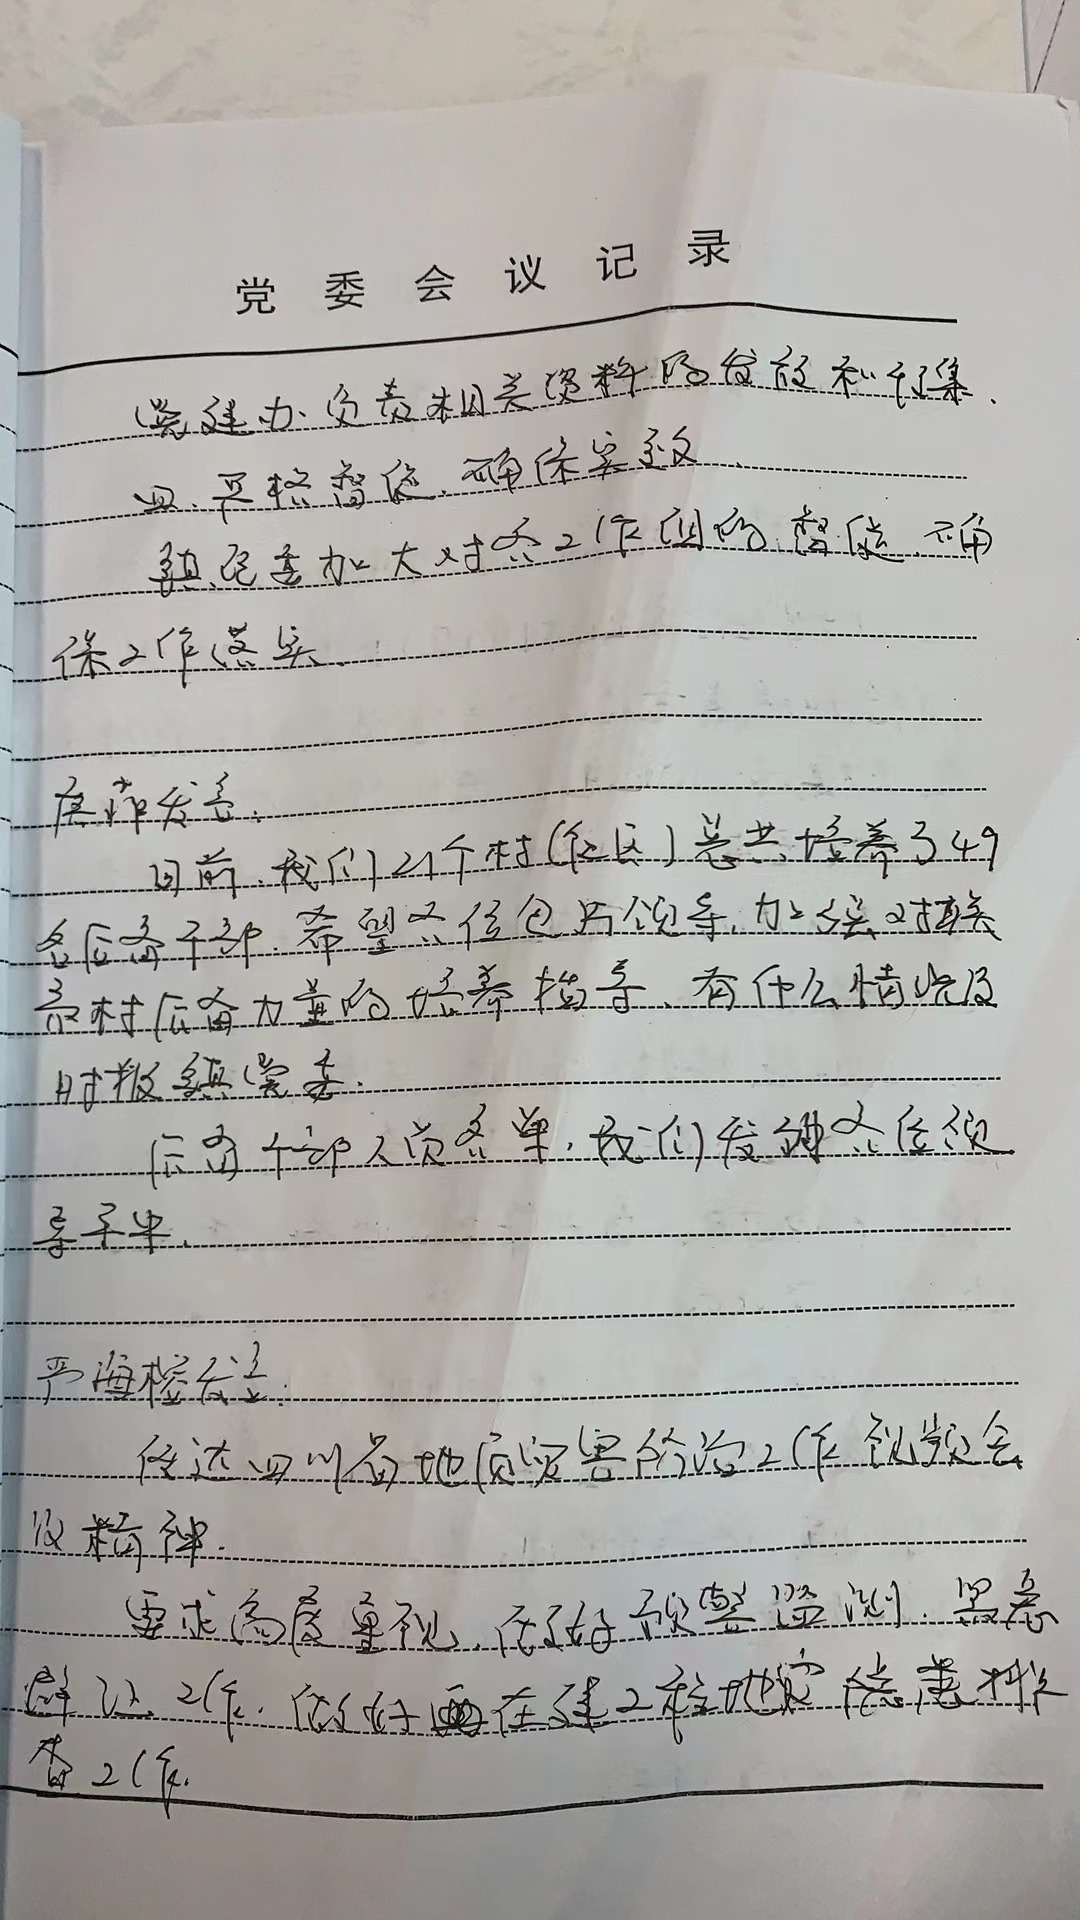 党委会议记录
党建办负责相关资料的发放和归集.
四.严格督促.确保实效.
镇纪委加大对各工作组的督促.确
保工作落实.
唐萍发言:
目前.我们21个村(社区)总共培养了49
名后备干部.希望各位包片领导.加强对相关
村后备力量的培养指导.有什么情况及
时报镇党委.
后备干部人员名单,我们发到各位领
导手中.
严海发言:
传达四川省地质灾害防治工作视频会
议精神.
要求高度重视.做好预警监测.
工作.做好在建工程地灾隐患排
查工作.